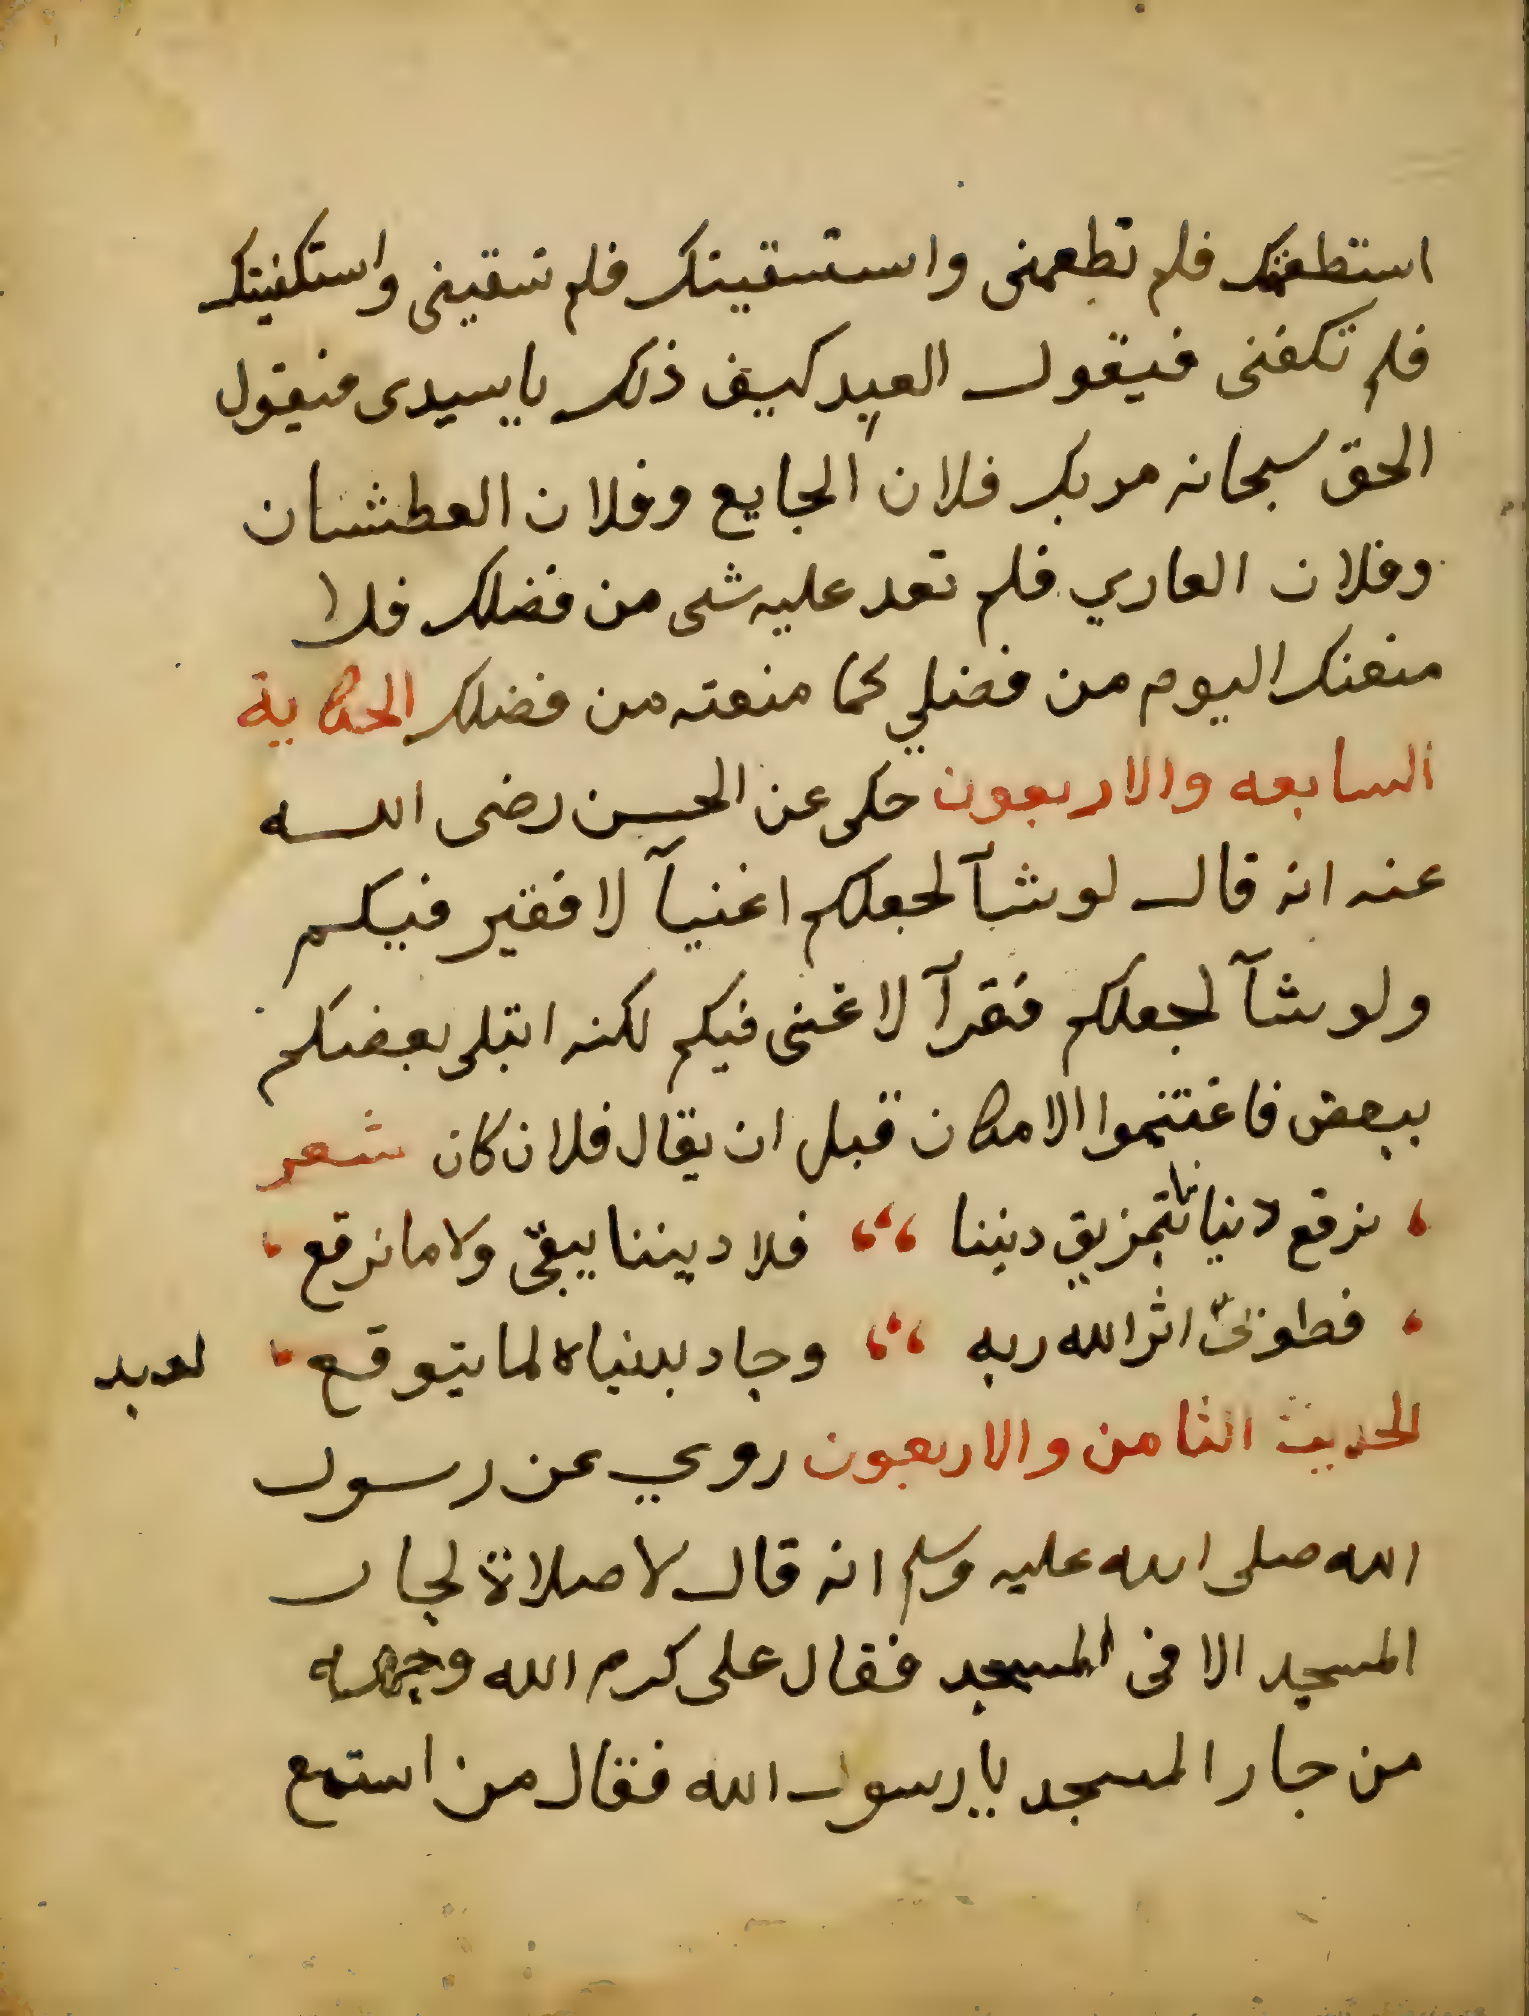 استطعمتك فلم تطعمنى واستسقيتك فلم تسقينى واستكفيتك
فلم تكفنى فيقول العبد كيف ذلك يا سيدى فيقول
الحق سبحانه مر بك فلان الجايع وفلان العطشان
وفلان العاري فلم تعد عليه شى من فضلك فلا
منعنك اليوم من فضلي كما منعته من فضلك الحكاية
السابعه والاربعون حكى عن الحسن رضى الله
عنه انه قال لو شآ لجعلكم اغنيآ لا فقير فيكم
ولو شآ لجعلكم فقرآ لا غنى فيكم لكنه ابتلى بعضكم
ببعض فاغتنموا الامكان قبل ان يقال فلان كان شعر
نرقع دنيانا بتمزيق ديننا فلا ديننا يبقى ولا ما نرقع
فطوبى اثر الله ربه وجاد بدنياه لما يتوقع لعبد
الحديث الثامن والاربعون روي عن رسول
الله صلى الله عليه وسلم انه قال لا صلاة لجار
المسجد الا فى المسجد فقال على كرم الله وجهه
من جار المسجد يا رسول الله فقال من استمع